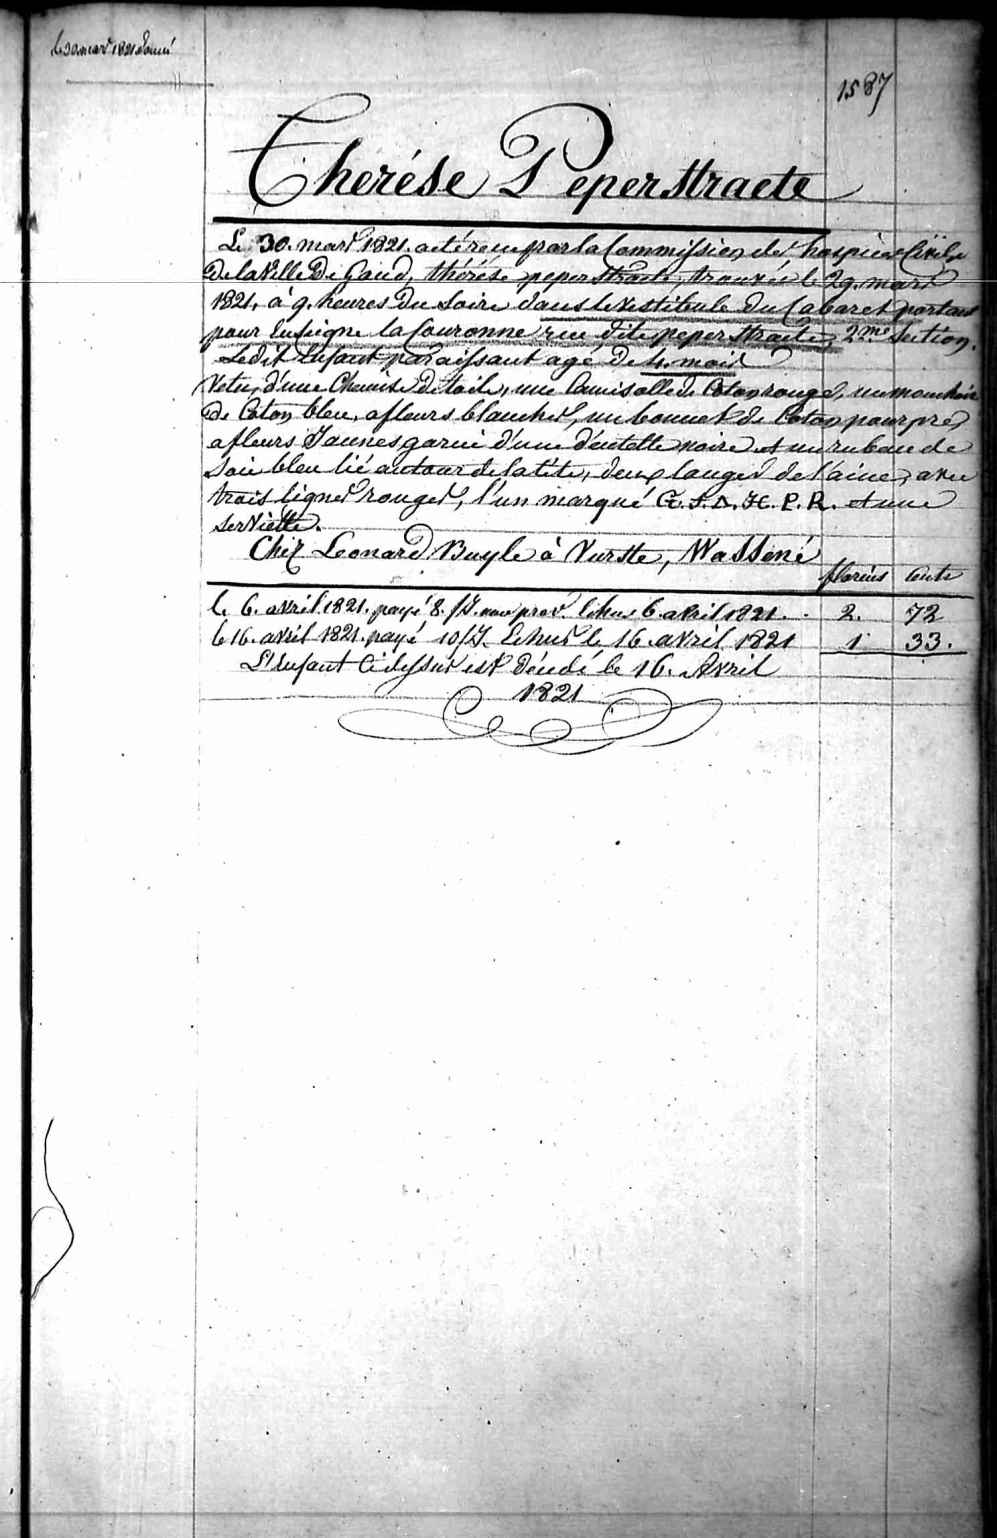 Le 30 mars 1821 donné
1587
Therése Peperstraete
Le 30. mars 1821. a été reçu par la Commission des hospices Civils
De la Ville De Gand, thérése peperstraete, trouvée le 29. mars
1821, à 9. heures Du Soire dans le vestibule du Cabaret portant
pour Enseigne la Couronne rue dite peperstraete, 2me Section.
Ledit Enfant paraissant agé de 4. mois
Vetu, d'une Chemise De toile, une Camisolle de Coton rouge, un mouchoir
de Coton bleu, a fleurs blanches, un bonnet de Coton pourpre
a fleurs Jaunes garni d'une dentelle noire et un ruban de
Soie bleu lié autour de la tête, deux langes de laine, avec
trois lignes rouges, l'un marqué G. I. D. H. P. R. et une
serviette.
Chez Leonard Buyle à Vurste, Wassené
florins Cents
le 6. avril. 1821. payé 8. Echus 6. avril 1821. . 2. 72
le 16. avril 1821. payé Echus le 16. avril 1821 1 33.
L'Enfant Ci dessus est Décédé le 16. Avril
1821